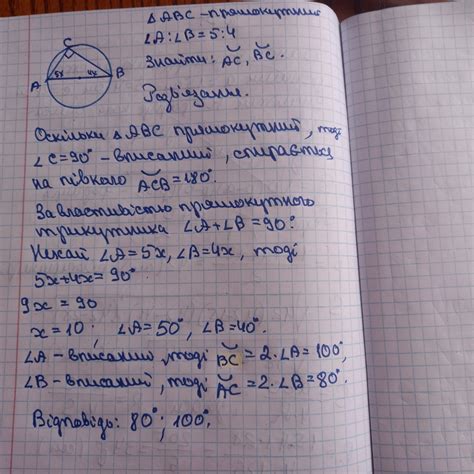 △ABC – прямокутний
∠A:∠B = 5:4
Знайти: AC, BC.
C
A 5x 4x B
Розв'язання.
Оскільки △ABC прямокутний, тоді
∠C=90° – вписаний, спирається
на півколо ACB = 180°.
За властивістю прямокутного
трикутника ∠A+∠B = 90°.
Нехай ∠A=5x, ∠B=4x, тоді
5x+4x=90°
9x = 90
x = 10; ∠A=50°, ∠B=40°.
∠A – вписаний, тоді BC = 2·∠A = 100°,
∠B – вписаний, тоді AC = 2·∠B = 80°.
Відповідь: 80°; 100°.